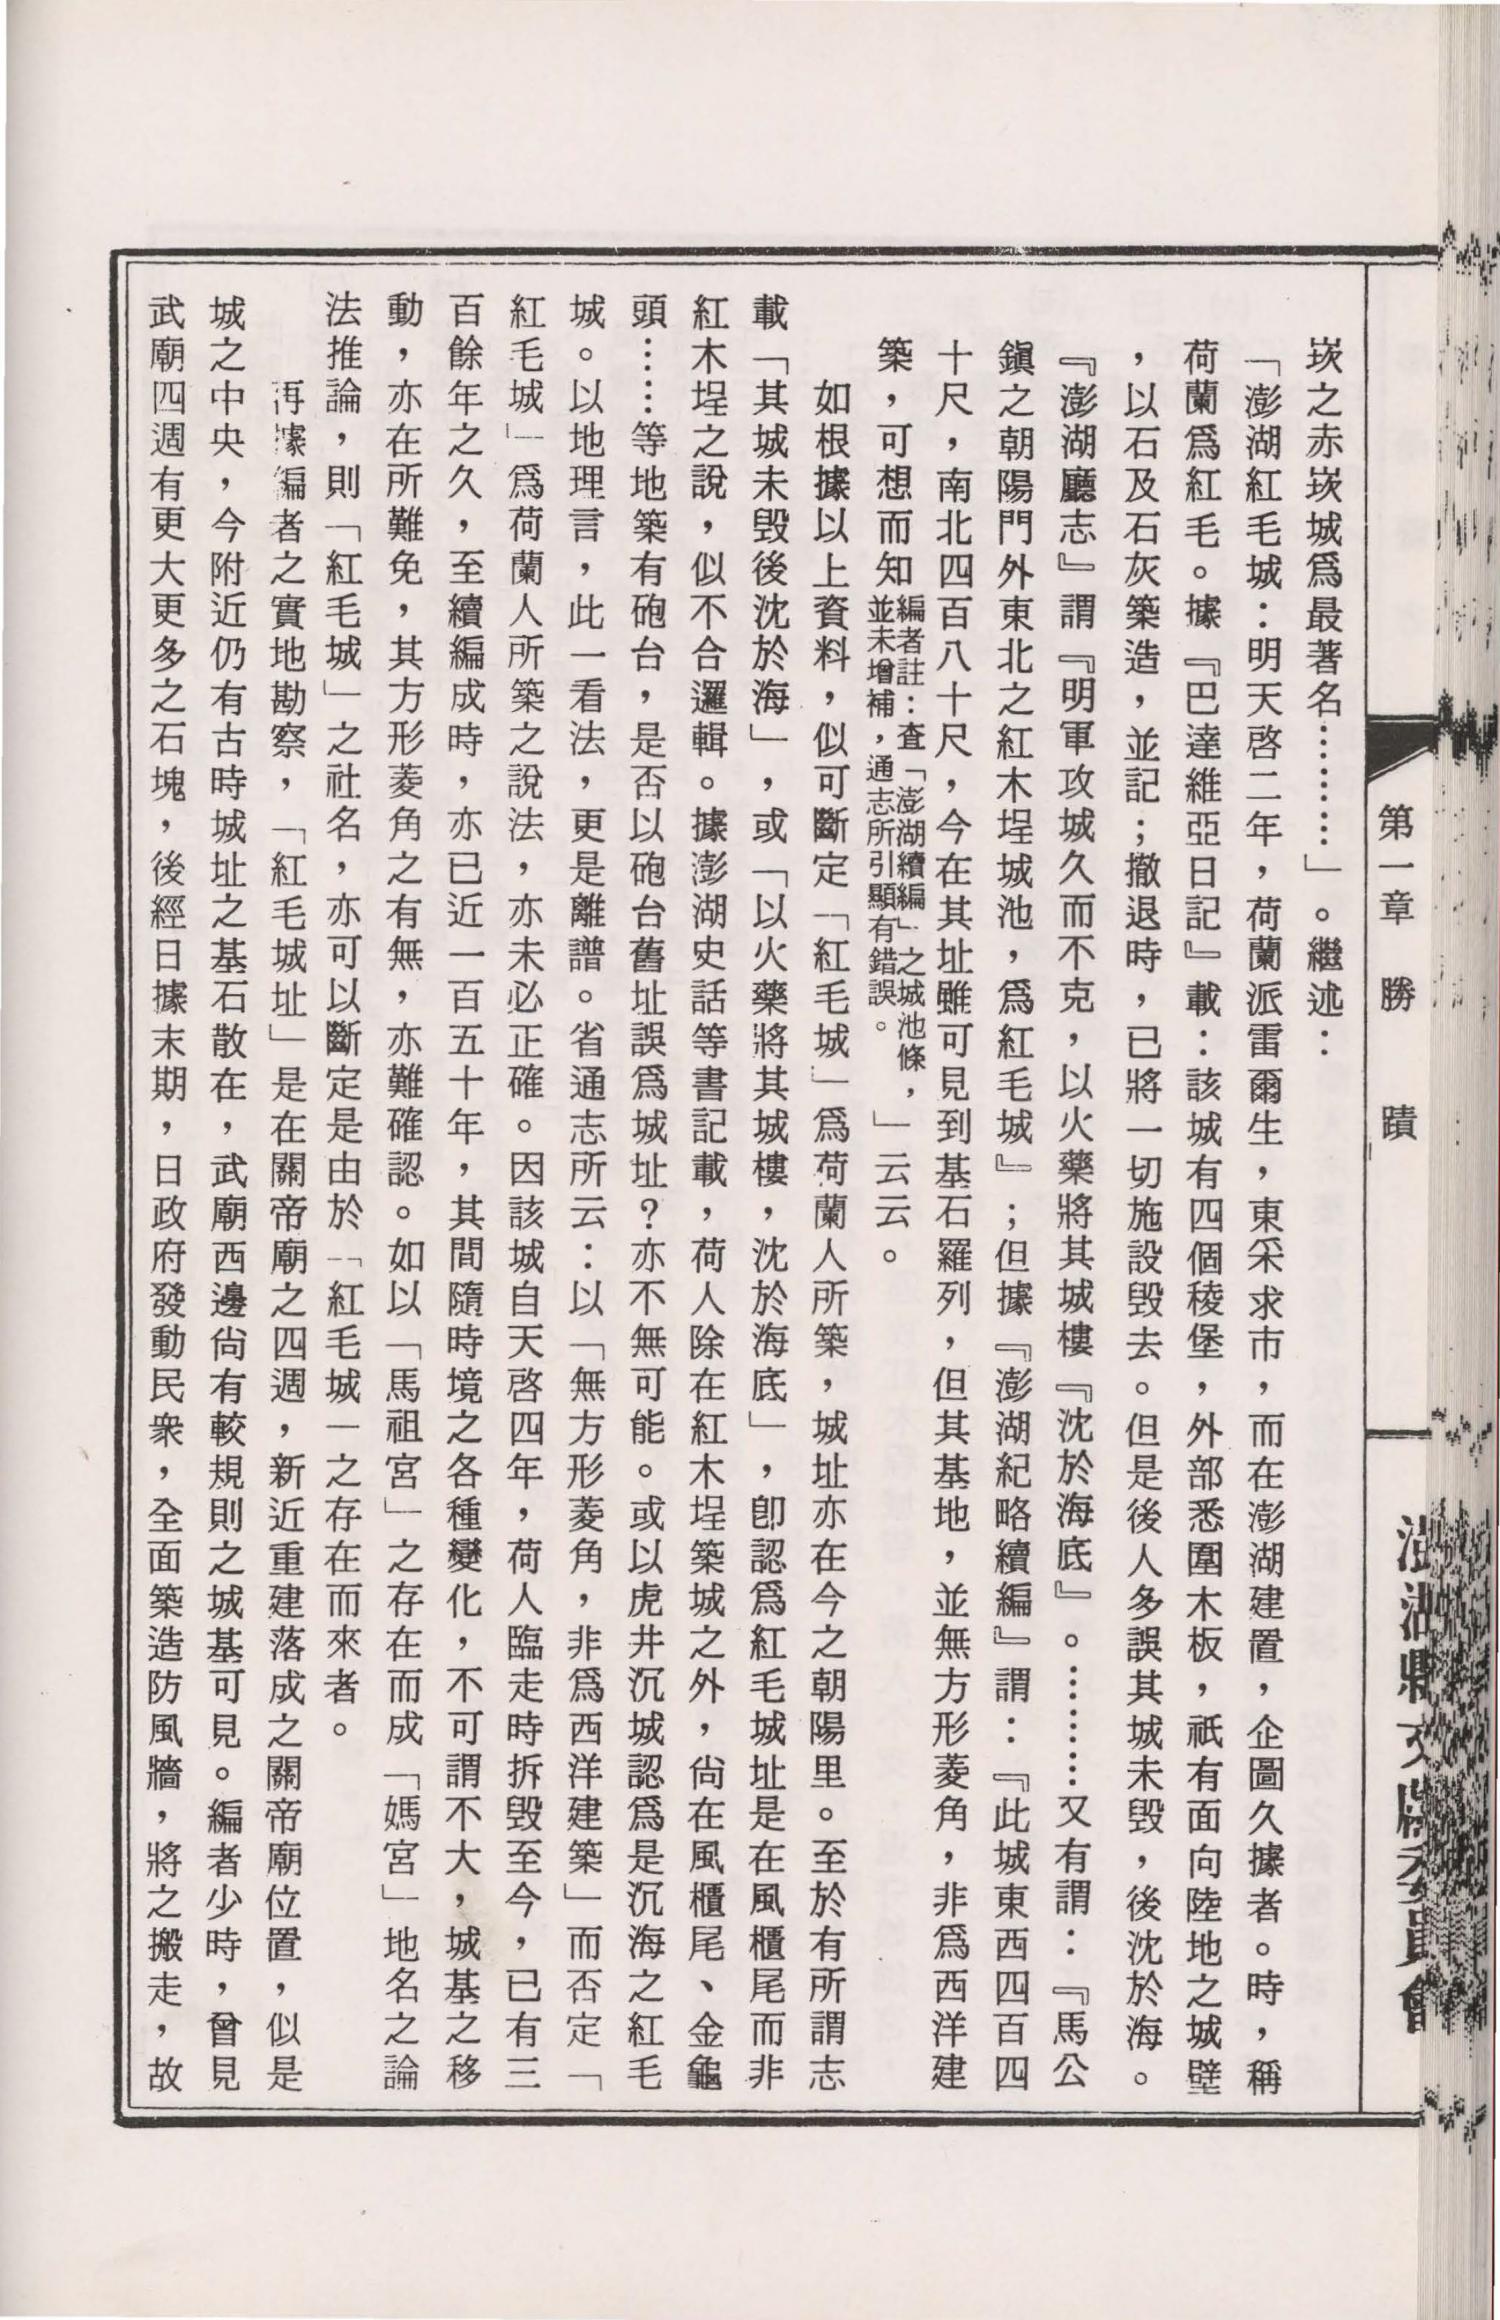 第一章　勝　蹟
澎湖縣文獻委員會
崁之赤崁城爲最著名………」。繼述：
「澎湖紅毛城：明天啓二年，荷蘭派雷爾生，東采求市，而在澎湖建置，企圖久據者。時，稱
荷蘭爲紅毛。據『巴達維亞日記』載：該城有四個稜堡，外部悉圍木板，祇有面向陸地之城壁
，以石及石灰築造，並記；撤退時，已將一切施設毀去。但是後人多誤其城未毀，後沈於海。
『澎湖廳志』謂『明軍攻城久而不克，以火藥將其城樓『沈於海底』。………又有謂：『馬公
鎭之朝陽門外東北之紅木埕城池，爲紅毛城』；但據『澎湖紀略續編』謂：『此城東西四百四
十尺，南北四百八十尺，今在其址雖可見到基石羅列，但其基地，並無方形菱角，非爲西洋建
築，可想而知編者註：查「澎湖續編」之城池條，並未增補，通志所引顯有錯誤。」云云。
如根據以上資料，似可斷定「紅毛城」爲荷蘭人所築，城址亦在今之朝陽里。至於有所謂志
載「其城未毀後沈於海」，或「以火藥將其城樓，沈於海底」，卽認爲紅毛城址是在風櫃尾而非
紅木埕之說，似不合邏輯。據澎湖史話等書記載，荷人除在紅木埕築城之外，尙在風櫃尾、金龜
頭……等地築有砲台，是否以砲台舊址誤爲城址？亦不無可能。或以虎井沉城認爲是沉海之紅毛
城。以地理言，此一看法，更是離譜。省通志所云：以「無方形菱角，非爲西洋建築」而否定「
紅毛城」爲荷蘭人所築之說法，亦未必正確。因該城自天啓四年，荷人臨走時拆毀至今，已有三
百餘年之久，至續編成時，亦已近一百五十年，其間隨時境之各種變化，不可謂不大，城基之移
動，亦在所難免，其方形菱角之有無，亦難確認。如以「馬祖宮」之存在而成「媽宮」地名之論
法推論，則「紅毛城」之社名，亦可以斷定是由於「紅毛城一之存在而來者。
再據編者之實地勘察，「紅毛城址」是在關帝廟之四週，新近重建落成之關帝廟位置，似是
城之中央，今附近仍有古時城址之基石散在，武廟西邊尙有較規則之城基可見。編者少時，曾見
武廟四週有更大更多之石塊，後經日據末期，日政府發動民衆，全面築造防風牆，將之搬走，故